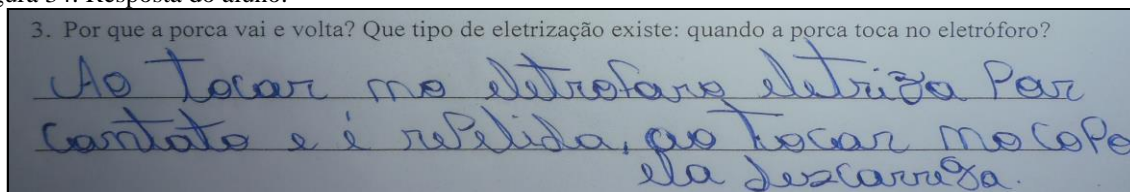 3. Por que a porca vai e volta? Que tipo de eletrização existe: quando a porca toca no eletróforo?
Ao tocar no eletrofaro eletriza Por
contato e é rePelida, ao tocar no coPo
ela descarrega.